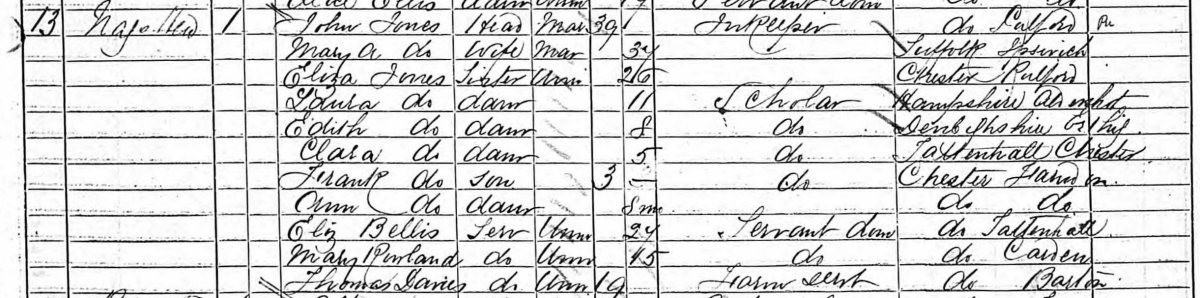 Alice Ellis daur Unm 17 Servant Dom do do
13 Nags Head 1 John Jones Head Mar 39 Inkeeper do Calford
Mary A do Wife Mar 37 Suffolk Ipswich
Eliza Jones Sister Unm 26 Chester Pulford
Laura do daur 11 Scholar Hampshire Aldershot
Edith do daur 8 do Denbighshire
Clara do daur 5 do Tattenhall Chester
Frank do son 3 do Chester Farndon
Ann do daur 8m do do
Eliz Bellis Serv Unm 24 Servant Dom do Tattenhall
Mary Rowland do Unm 45 do do Carden
Thomas Davies do Unm 19 Farm Servt do Barton